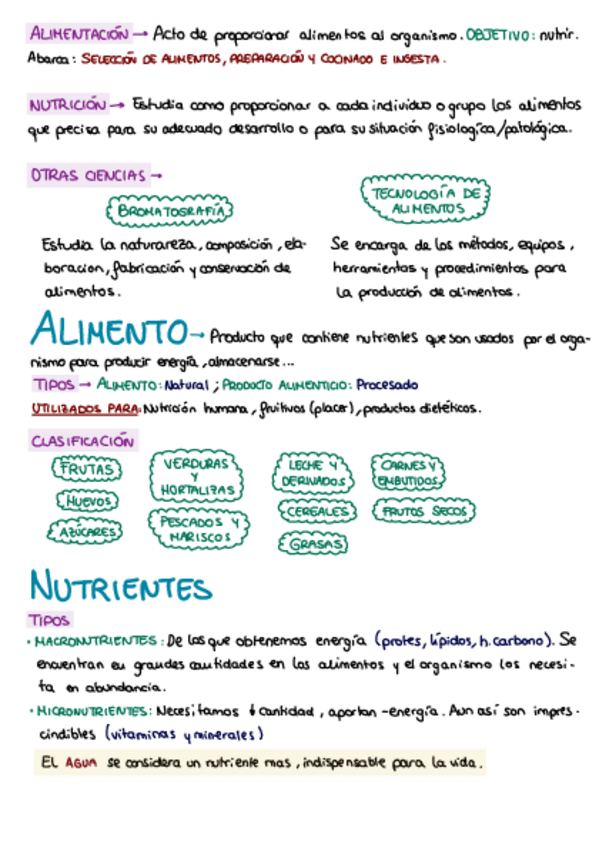 ALIMENTACIÓN → Acto de proporcionar alimentos al organismo. OBJETIVO: nutrir.
Abarca: SELECCIÓN DE ALIMENTOS, PREPARACIÓN Y COCINADO E INGESTA.
NUTRICIÓN → Estudia como proporcionar a cada individuo o grupo los alimentos
que precisa para su adecuado desarrollo o para su situación fisiológica/patológica.
OTRAS CIENCIAS →
BROMATOGRAFÍA
Estudia la naturaleza, composición, ela-
boración, fabricación y conservación de
alimentos.
TECNOLOGÍA DE
ALIMENTOS
Se encarga de los métodos, equipos,
herramientas y procedimientos para
la producción de alimentos.
ALIMENTO → Producto que contiene nutrientes que son usados por el orga-
nismo para producir energía, almacenarse...
TIPOS → ALIMENTO: Natural; PRODUCTO ALIMENTICIO: Procesado
UTILIZADOS PARA: Nutrición humana, fruitivos (placer), productos dietéticos.
CLASIFICACIÓN
FRUTAS
HUEVOS
AZÚCARES
VERDURAS
Y
HORTALIZAS
PESCADOS Y
MARISCOS
LECHE Y
DERIVADOS
CEREALES
GRASAS
CARNES Y
EMBUTIDOS
FRUTOS SECOS
NUTRIENTES
TIPOS
· MACRONUTRIENTES: De los que obtenemos energía (protes, lípidos, h. carbono). Se
encuentran en grandes cantidades en los alimentos y el organismo los necesi-
ta en abundancia.
· MICRONUTRIENTES: Necesitamos ↓ cantidad, aportan -energía. Aun así son impres-
cindibles (vitaminas y minerales)
EL AGUA se considera un nutriente mas, indispensable para la vida.